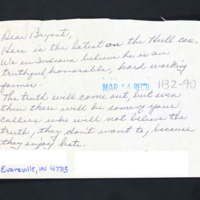 Dear Bryant,
Here is the latest on the Hull case.
We in Indiana believe he is an
truthful, honorable, hard working
farmer.
MAR 14
1132-90
The truth will come out, but even
then there will be some of your
callers who will not believe the
truth, they don't want to, because
they enjoy hate.
Evansville, IN 47715